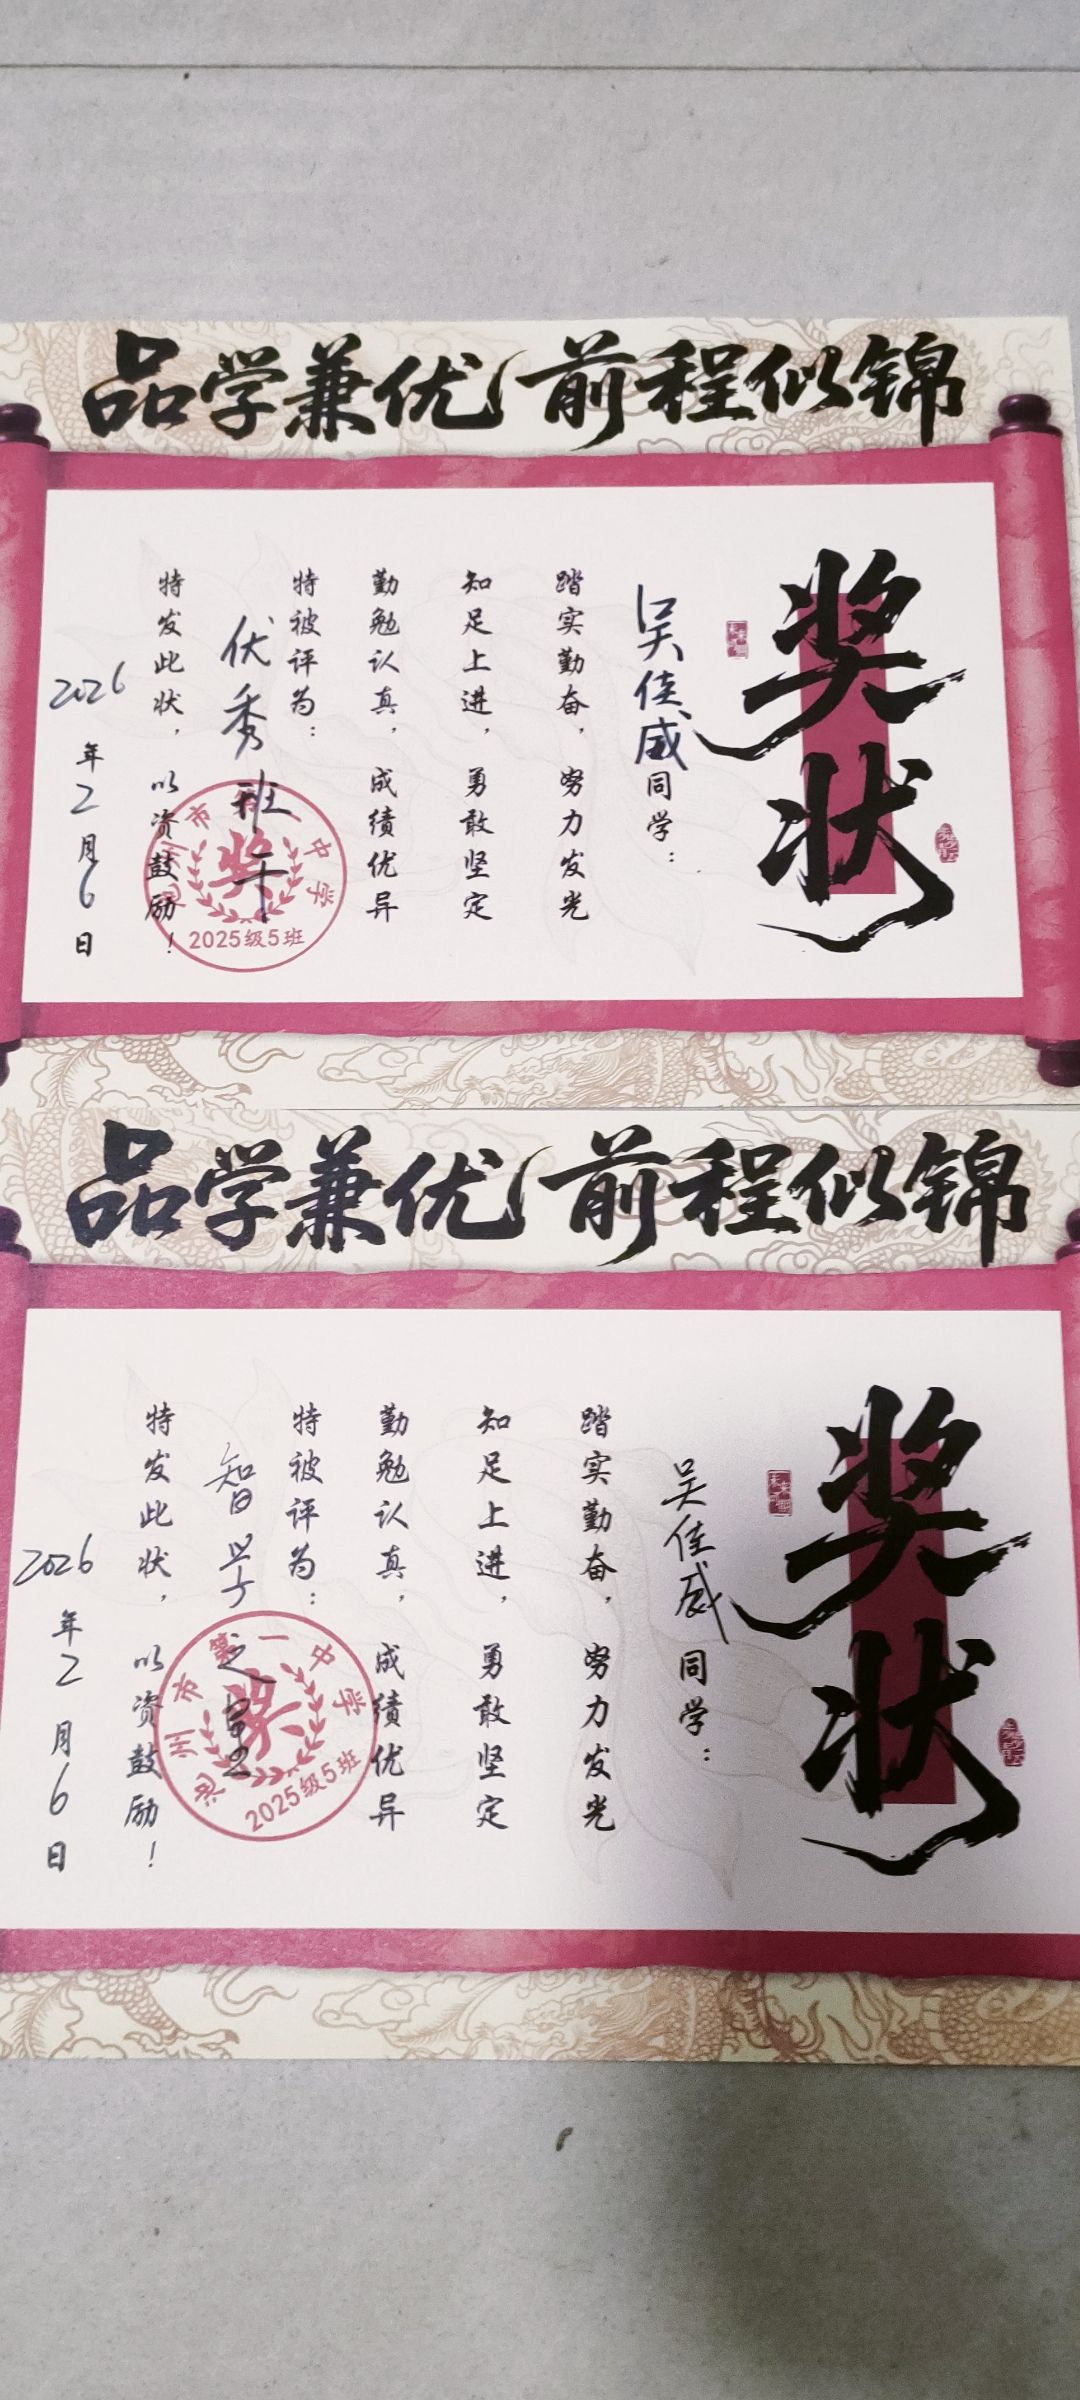 品学兼优 前程似锦
奖状
吴佳威同学：
踏实勤奋，努力发光
知足上进，勇敢坚定
勤勉认真，成绩优异
特被评为：
优秀班干
特发此状，以资鼓励！
2026年2月6日
市 一中学
2025级5班
奖
品学兼优 前程似锦
奖状
吴佳威同学：
踏实勤奋，努力发光
知足上进，勇敢坚定
勤勉认真，成绩优异
特被评为：
智学之星
特发此状，以资鼓励！
2026年2月6日
池州市第一中学
2025级5班
奖